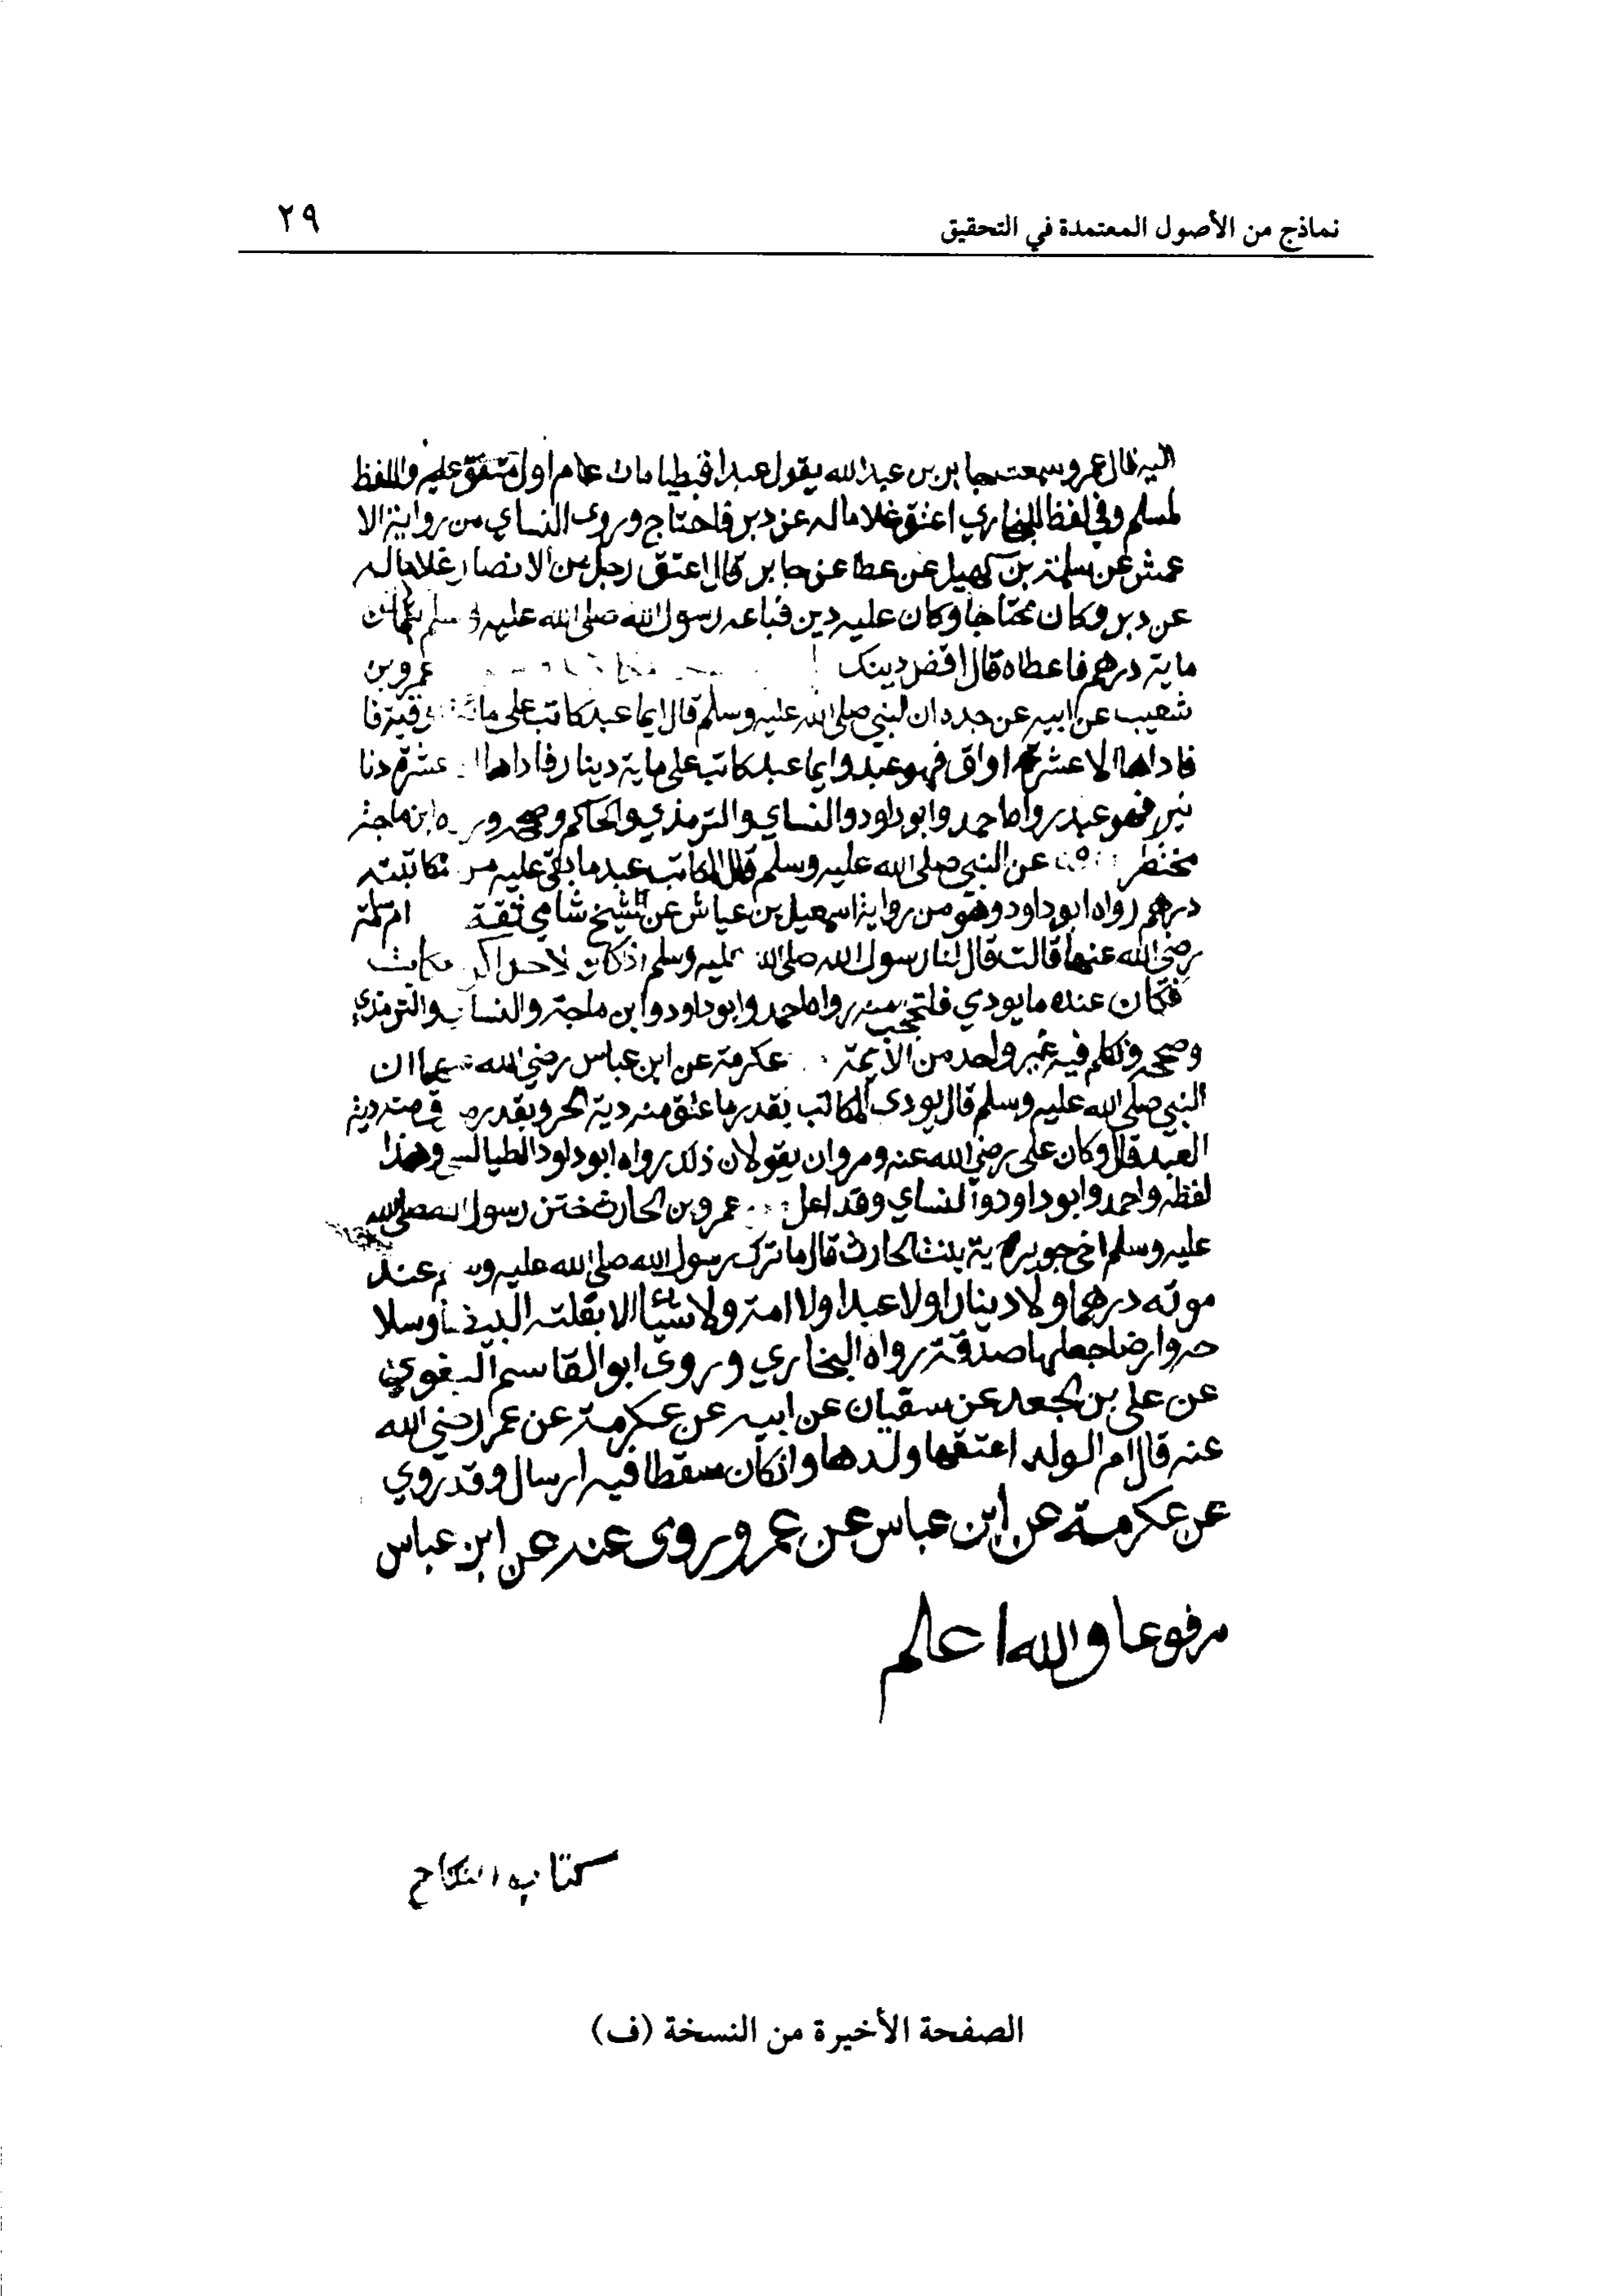 نماذج من الأصول المعتمدة في التحقيق ٢٩
اليه قال عمرو سمعت جابر بن عبد الله يقول عبدا قبطيا مات عام اول متفق عليه واللفظ
لمسلم وفي لفظ للبخاري اعتق غلاما له عن دبر فاحتاج وروى النساي من رواية الا
عمش عن سلمة بن كهيل عن عطا عن جابر قال اعتق رجل من الانصار غلاما له
عن دبر وكان محتاجا وكان عليه دين فباعه رسول الله صلى الله عليه وسلم بثمان
ماية درهم فاعطاه قال اقض دينك عمرو بن
شعيب عن ابيه عن جده ان لنبي صلى الله عليه وسلم قال ايما عبد كاتب على مائة وقية فا
فاداها الا عشرة اواق فهو عبد وايما عبد كاتب على ماية دينار فاداها عشرة دنا
نير فهو عبد رواه احمد وابو داود والنساي والترمذي والحاكم وصححه ابن ماجة
مختصر عن النبي صلى الله عليه وسلم قال المكاتب عبد ما بقي عليه من مكاتبته
درهم رواه ابو داود وهو من رواية اسمعيل بن عياش عن شيخ شامي ثقة ام سلمة
رضي الله عنها قالت قال لنا رسول الله صلى الله عليه وسلم اذ كان لاحداكن مكاتب
فكان عنده ما يودي فلتحتجب منه رواه احمد وابو داود وابن ماجة والنساي والترمذي
وصححه وتكلم فيه غير واحد من الأيمة عكرمة عن ابن عباس رضي الله عنهما ان
النبي صلى الله عليه وسلم قال يودى المكاتب بقدر ما عتق منه دية الحر وبقدر ما رق منه دية
العبد قال وكان على رضي الله عنه ومروان يقولان ذلك رواه ابو داود الطيالسي وهذا
لفظه واحمد وابو داود والنساي وقد اعل عمرو بن الحارث ختن رسول الله صلى الله
عليه وسلم اخى جويرية بنت الحارث قال ما ترك رسول الله صلى الله عليه وسلم عند
موته درهما ولا دينارا ولا عبدا ولا امة ولا شيئا الا بغلته البيضا وسلا
حه وارضا جعلها صدقة رواه البخاري وروى ابو القاسم البغوي
عن على بن الجعد عن سفيان عن ابيه عن عكرمة عن عمر رضي الله
عنه قال ام الولد اعتقها ولدها وانكان سقطا فيه ارسال وقد روي
عن عكرمة عن ابن عباس عن عمر وروى عنه عن ابن عباس
مرفوعا والله اعلم
كتاب النكاح
الصفحة الأخيرة من النسخة (ف)